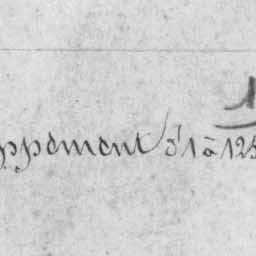 1
ppement d'1 à 125